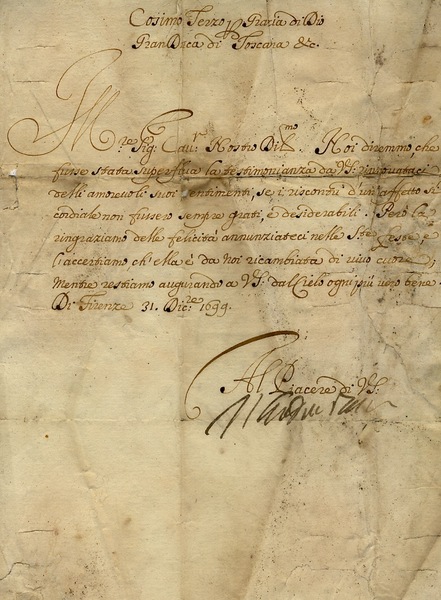 Cosimo Terzo p Grazia di Dio
Gran Duca di Toscana &c.
M.re Sig.r Cav.r Nostro Dil.mo Noi diremmo, che
fusse stata superflua la testimonianza da V.S. rinnovataci
delli amorevoli suoi sentimenti, se i riscontri d'un affetto sì
cordiale non fussero sempre grati, e desiderabili. Però la
ringraziamo delle felicità annunziateci nelle S.te Feste, e
l'accertiamo ch'ella è da noi ricambiata di vivo cuore,
Mentre restiamo augurando a V.S. dal Cielo ogni più vero bene.
Di Firenze 31. Dic.re 1699.
Al Piacere di V.S.